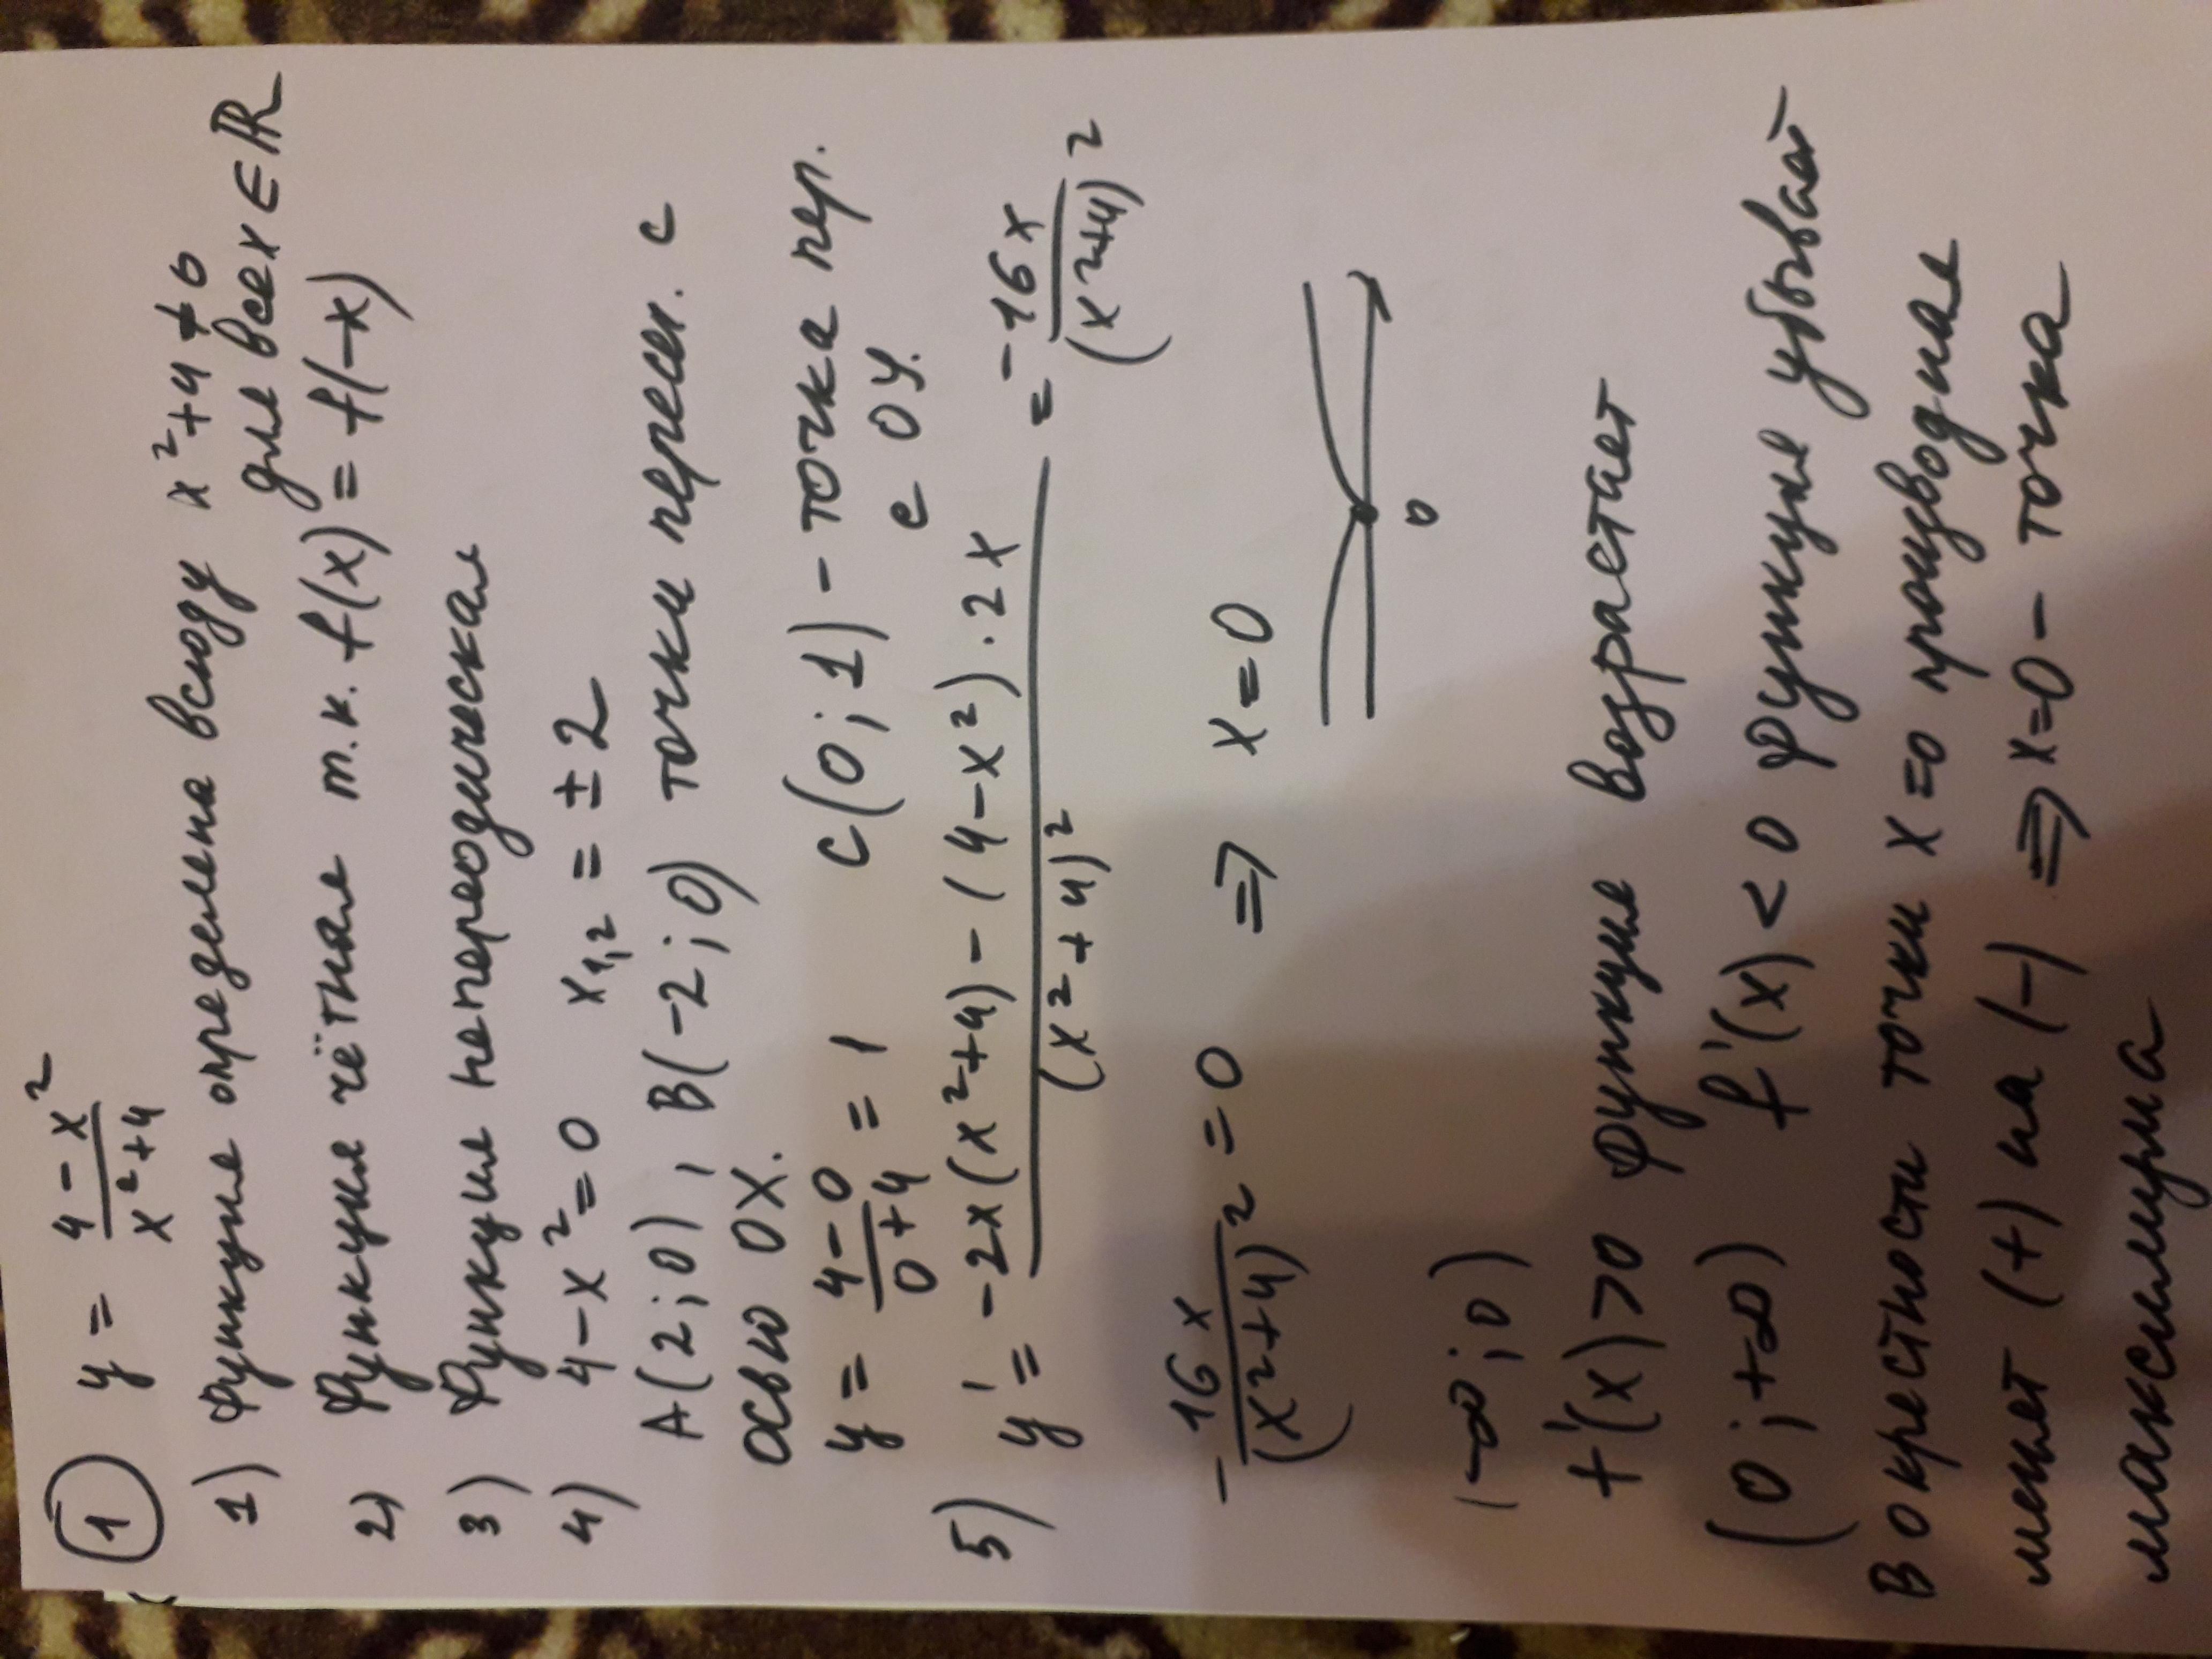 1 y = (4-x²)/(x²+4)
1) Функция определена всюду x²+4≠0
для всех x∈ℝ
2) Функция чётная т.к. f(x) = f(-x)
3) Функция непереодическая
4) 4-x²=0 x₁,₂ = ±2
A(2;0), B(-2;0) точки пересек. с
осью OX.
y = (4-0)/(0+4) = 1 C(0;1) - точка пер.
с OY.
5) y' = (-2x(x²+4) - (4-x²)·2x)/(x²+4)² = -16x/(x²+4)²
-16x/(x²+4)² = 0 ⇒ x=0
0
(-∞;0)
f'(x)>0 функция возрастает
(0;+∞) f'(x)<0 функция убывает
В окрестности точки x=0 производная
меняет (+) на (-) ⇒ x=0 - точка
максимума